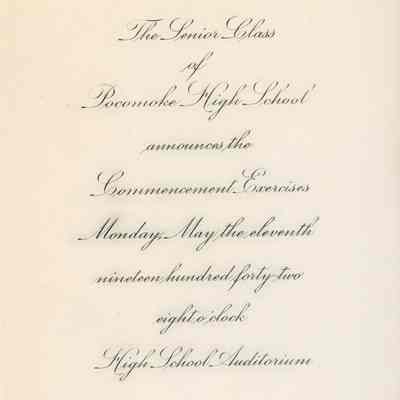 The Senior Class
of
Pocomoke High School
announces the
Commencement Exercises
Monday, May the eleventh
nineteen hundred forty-two
eight o'clock
High School Auditorium